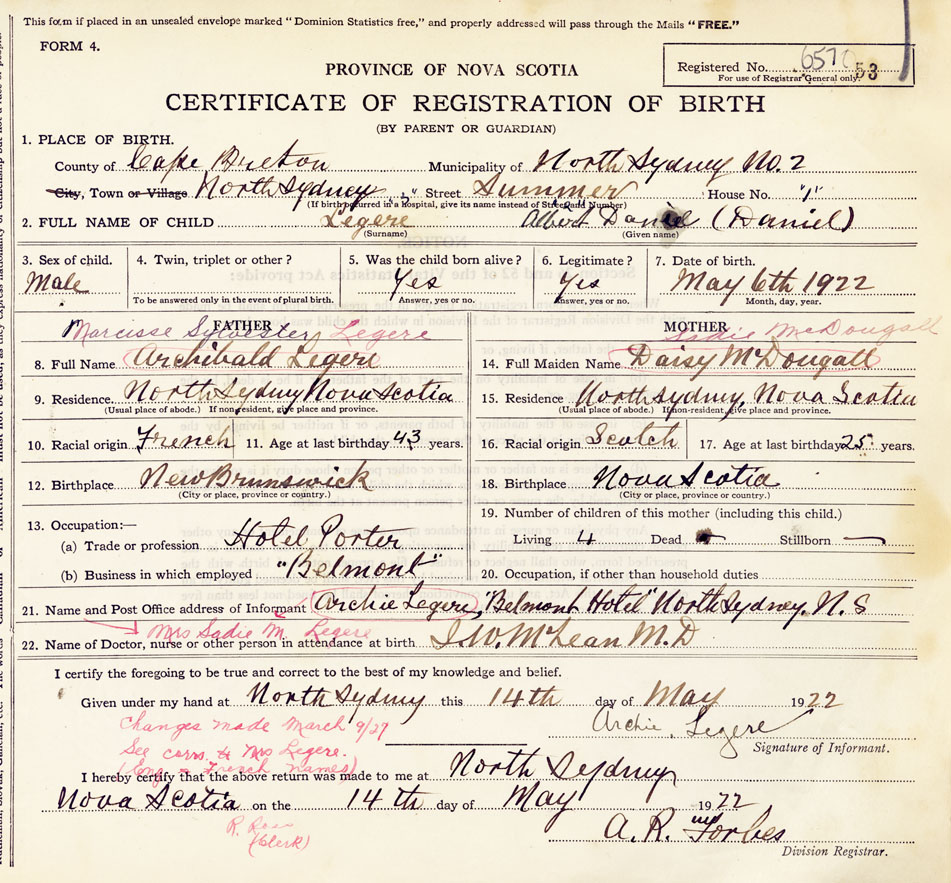 This form if placed in an unsealed envelope marked "Dominion Statistics free," and properly addressed will pass through the Mails "FREE."
FORM 4.
PROVINCE OF NOVA SCOTIA
Registered No. 6570 53
For use of Registrar General only.
CERTIFICATE OF REGISTRATION OF BIRTH
(BY PARENT OR GUARDIAN)
1. PLACE OF BIRTH.
County of Cape Breton Municipality of North Sydney No. 2
City, Town or Village North Sydney Street Summer House No. "1"
(If birth occurred in a hospital, give its name instead of Street and Number)
2. FULL NAME OF CHILD Legere Albert Daniel (Daniel)
(Surname) (Given name)
3. Sex of child. 4. Twin, triplet or other? 5. Was the child born alive? 6. Legitimate? 7. Date of birth.
Male Yes Yes May 6th 1922
To be answered only in the event of plural birth. Answer, yes or no. Answer, yes or no. Month, day, year.
FATHER MOTHER
Narcisse Sylvester Legere Sadie McDougall
8. Full Name Archibald Legere 14. Full Maiden Name Daisy McDougall
9. Residence. North Sydney Nova Scotia 15. Residence North Sydney, Nova Scotia
(Usual place of abode.) If non-resident, give place and province. (Usual place of abode.) If non-resident, give place and province.
10. Racial origin French 11. Age at last birthday 43 years. 16. Racial origin Scotch 17. Age at last birthday 25 years.
12. Birthplace New Brunswick 18. Birthplace Nova Scotia
(City or place, province or country.) (City or place, province or country.)
13. Occupation:— 19. Number of children of this mother (including this child.)
(a) Trade or profession Hotel Porter Living 4 Dead Stillborn —
(b) Business in which employed "Belmont" 20. Occupation, if other than household duties
21. Name and Post Office address of Informant Archie Legere, "Belmont Hotel" North Sydney. N. S
Mrs Sadie M. Legere
22. Name of Doctor, nurse or other person in attendance at birth J. W. McLean M. D
I certify the foregoing to be true and correct to the best of my knowledge and belief.
Given under my hand at North Sydney this 14th day of May 1922
Changes made March 9/27 Archie. Legere
See corrs. to Mrs Legere. Signature of Informant.
(Eng & French names)
I hereby certify that the above return was made to me at North Sydney
Nova Scotia on the 14th day of May 1922
R. Ross
(Clerk)
A. R. Forbes
Division Registrar.